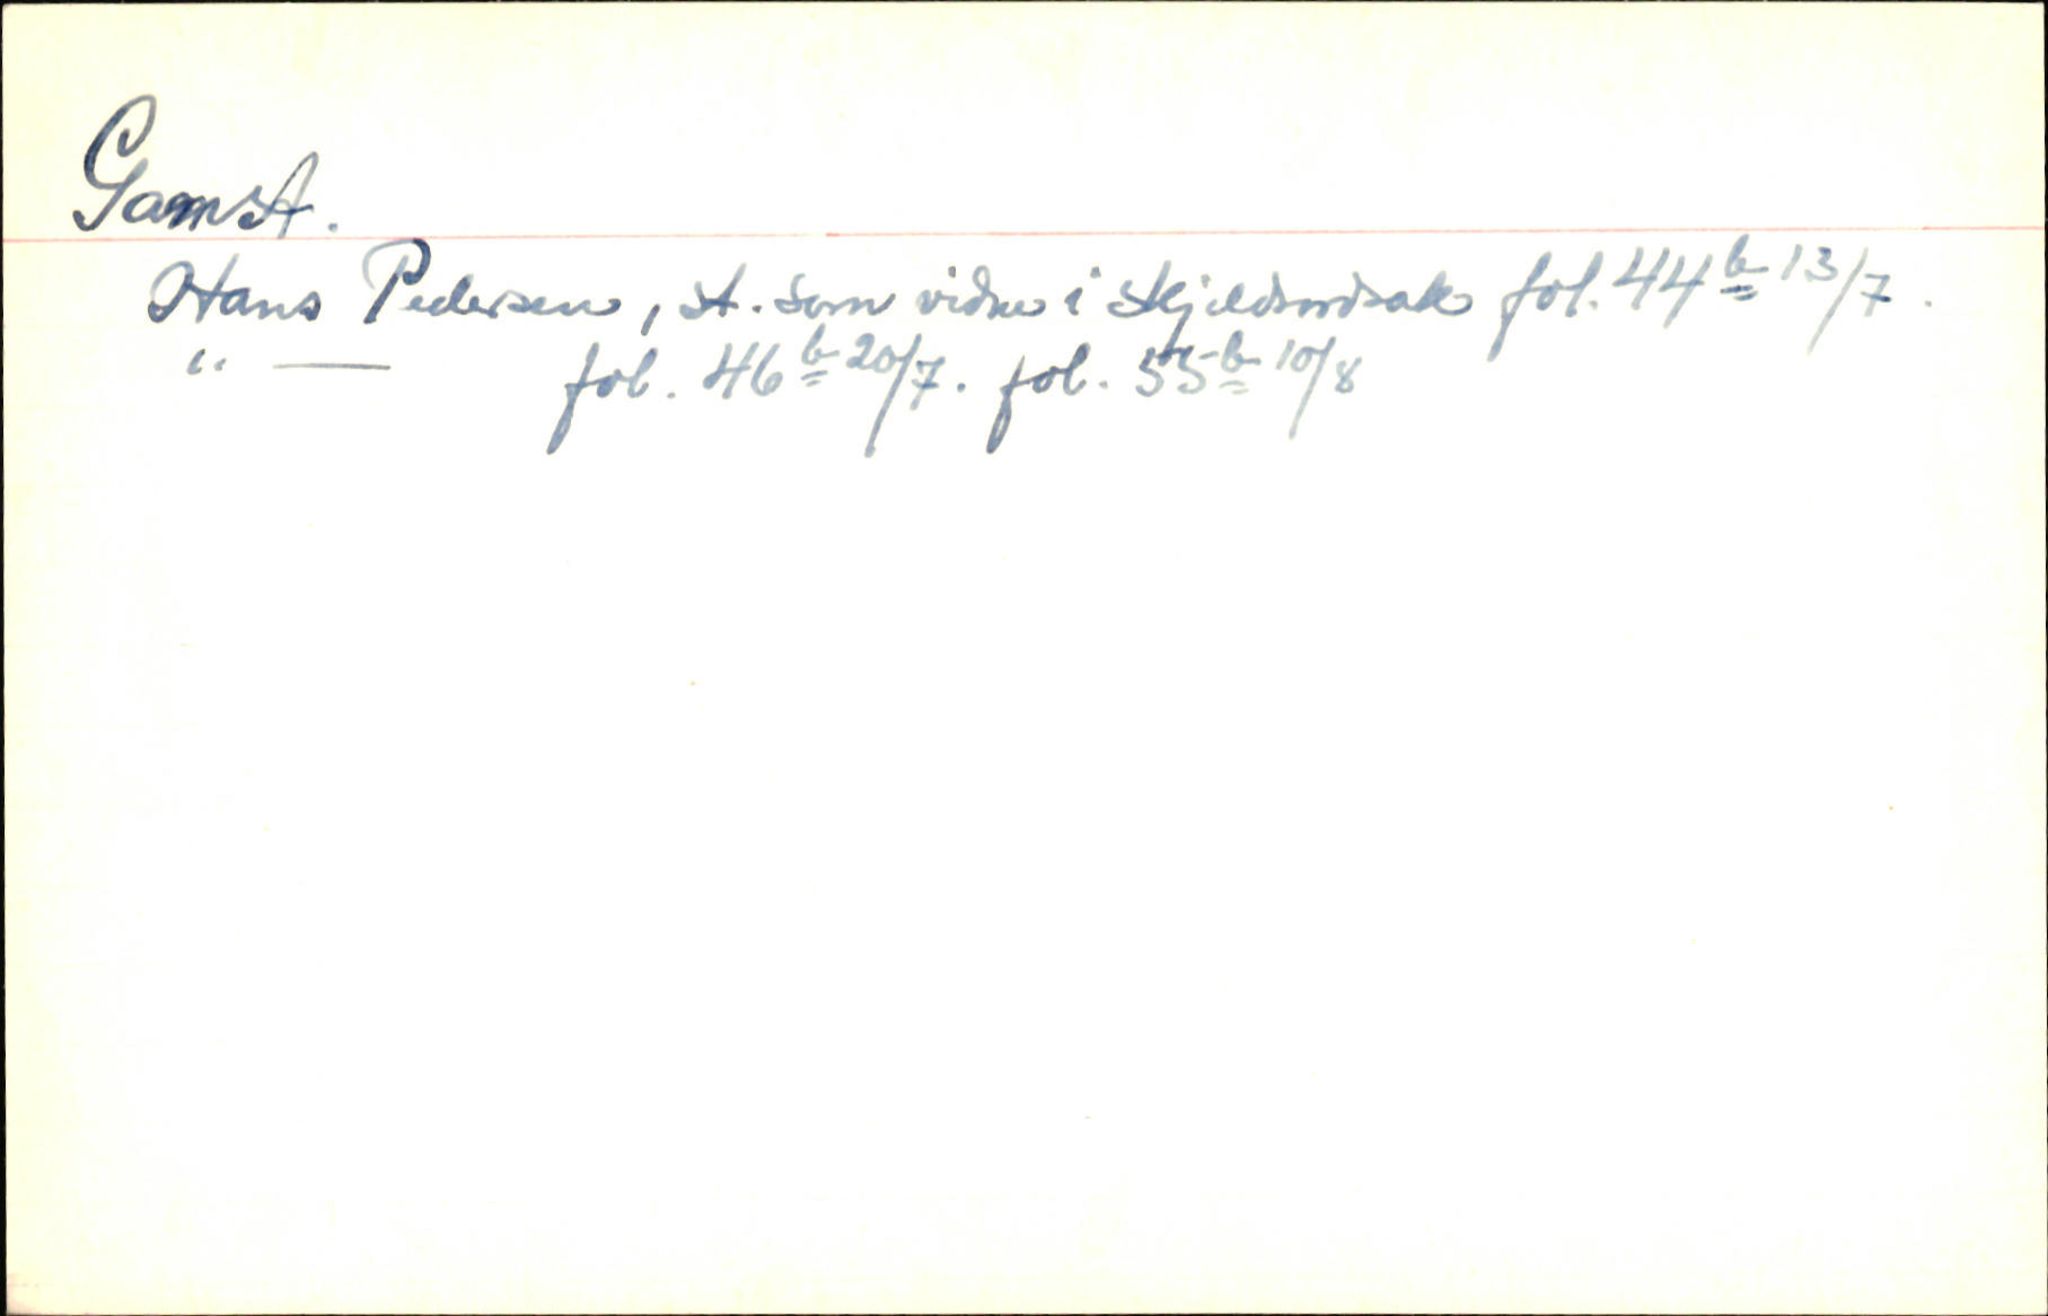 Gamst.
Hans Pedersen, st. som vidne i skjeldsordsak fol. 44b 13/7.
" — fol. 46b 20/7. fol. 55b 10/8